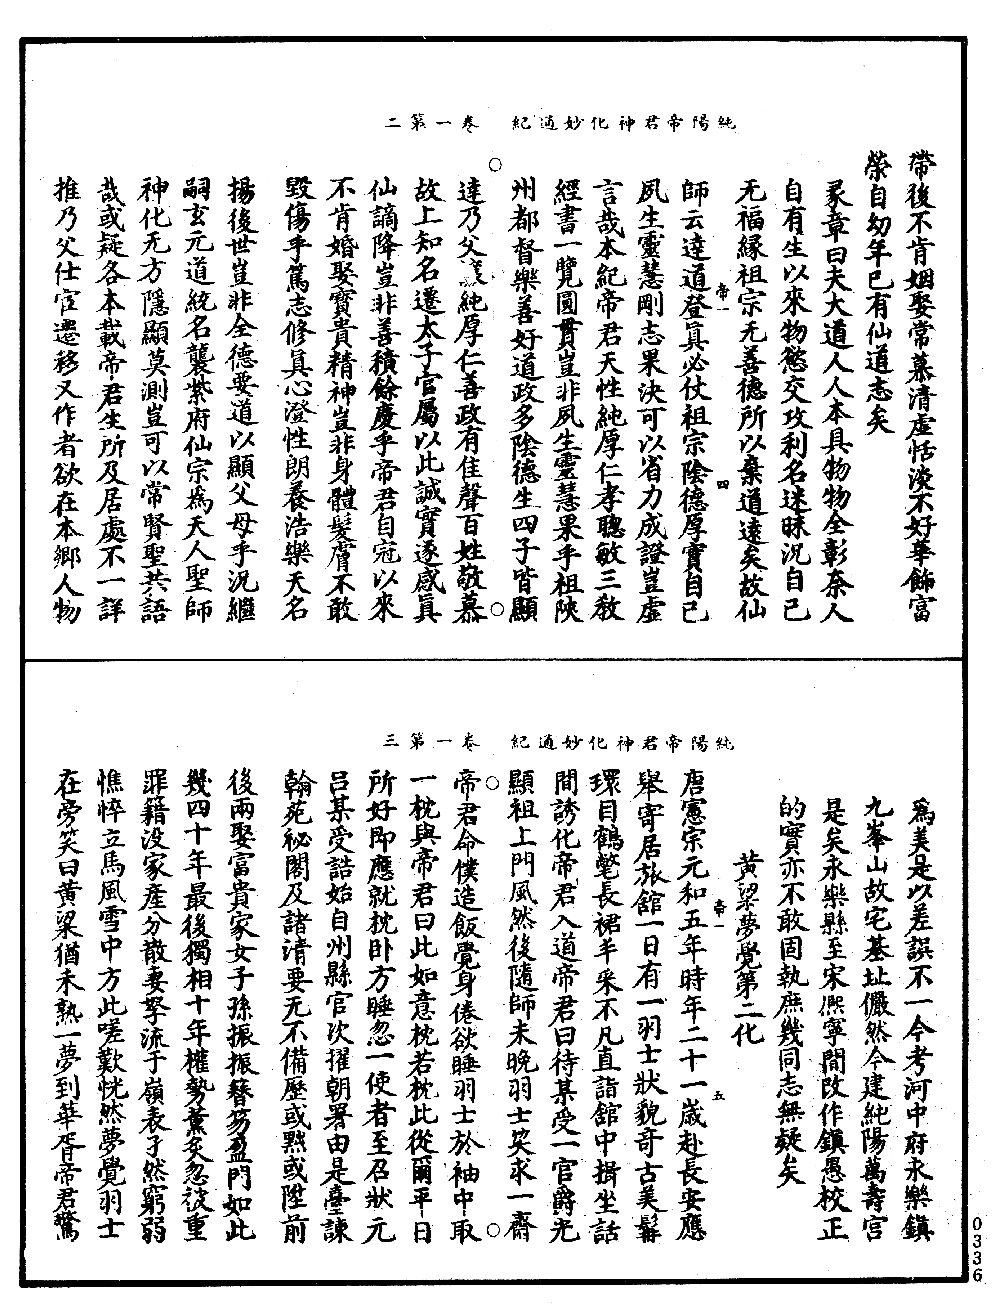 純陽帝君神化妙通紀　卷一第二
帶後不肯姻娶常慕清虛恬淡不好華飾富
榮自幼年已有仙道志矣
彖章曰夫大道人人本具物物全彰奈人
自有生以來物慾交攻利名迷昧況自己
无福緣祖宗无善德所以棄道遠矣故仙
帝一
四
師云達道登眞必仗祖宗陰德厚實自己
夙生靈慧剛志果決可以省力成證豈虛
言哉本紀帝君天性純厚仁孝聰敏三教
經書一覽圓貫豈非夙生靈慧果乎祖陝
州都督樂善好道政多陰德生四子皆顯
達乃父讓純厚仁善政有佳聲百姓敬慕
故上知名遷太子官屬以此誠實遂感眞
仙謫降豈非善積餘慶乎帝君自冠以來
不肯婚娶寶貴精神豈非身體髮膚不敢
毀傷乎篤志修眞心澄性朗養浩樂天名
揚後世豈非全德要道以顯父母乎況繼
嗣玄元道統名襲紫府仙宗爲天人聖師
神化无方隱顯莫測豈可以常賢聖共語
哉或疑各本載帝君生所及居處不一詳
推乃父仕宦遷移又作者欲在本鄉人物
純陽帝君神化妙通紀　卷一第三
爲美是以差誤不一今考河中府永樂鎮
九峯山故宅基址儼然今建純陽萬壽宮
是矣永樂縣至宋熙寧間改作鎮愚校正
的實亦不敢固執庶幾同志無疑矣
黄粱夢覺第二化
帝一
五
唐憲宗元和五年時年二十一歲赴長安應
舉寄居旅館一日有一羽士狀貌奇古美髯
環目鶴氅長裙丰采不凡直詣館中揖坐話
間誘化帝君入道帝君曰待某受一官爵光
顯祖上門風然後隨師未晚羽士笑求一齋
帝君命僕造飯覺身倦欲睡羽士於袖中取
一枕與帝君曰此如意枕若枕此從爾平日
所好即應就枕卧方睡忽一使者至召狀元
吕某受誥始自州縣官次擢朝署由是臺諫
翰苑祕閣及諸清要无不備歷或黜或陞前
後兩娶富貴家女子孫振振簪笏盈門如此
幾四十年最後獨相十年權勢薰炙忽被重
罪籍没家産分散妻孥流于嶺表孑然窮弱
憔悴立馬風雪中方此嗟歎恍然夢覺羽士
在旁笑曰黄粱猶未熟一夢到華胥帝君驚
0336